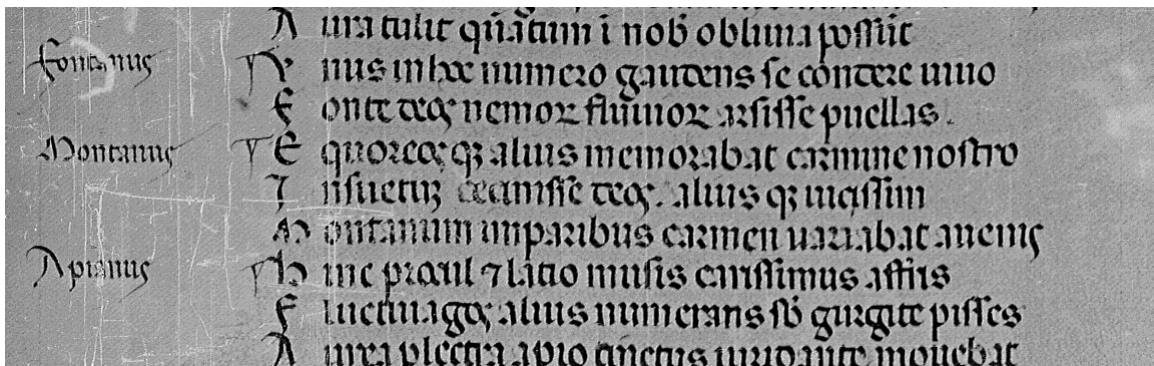 A ura tulit quātum ī nob oblinia possūt
Fontanus
V nus in hoc numero gaudens se condere uiuo
F onte deqȝ nemorꝝ fluuiorꝝ arsisse puellas.
Montanus
E quoreoqȝ qȝ alius memorabat carmine nostro
I nsuetuȝ deqȝ. alius qȝ
M ontanum imparibus carmen uariabat auenis
Apianus
h inc procul ⁊ latio musis carissimus
F luctiuagoqȝ alius numerans sb gurgite pisses
A urea plectra apio cinctus uiridante mouebat